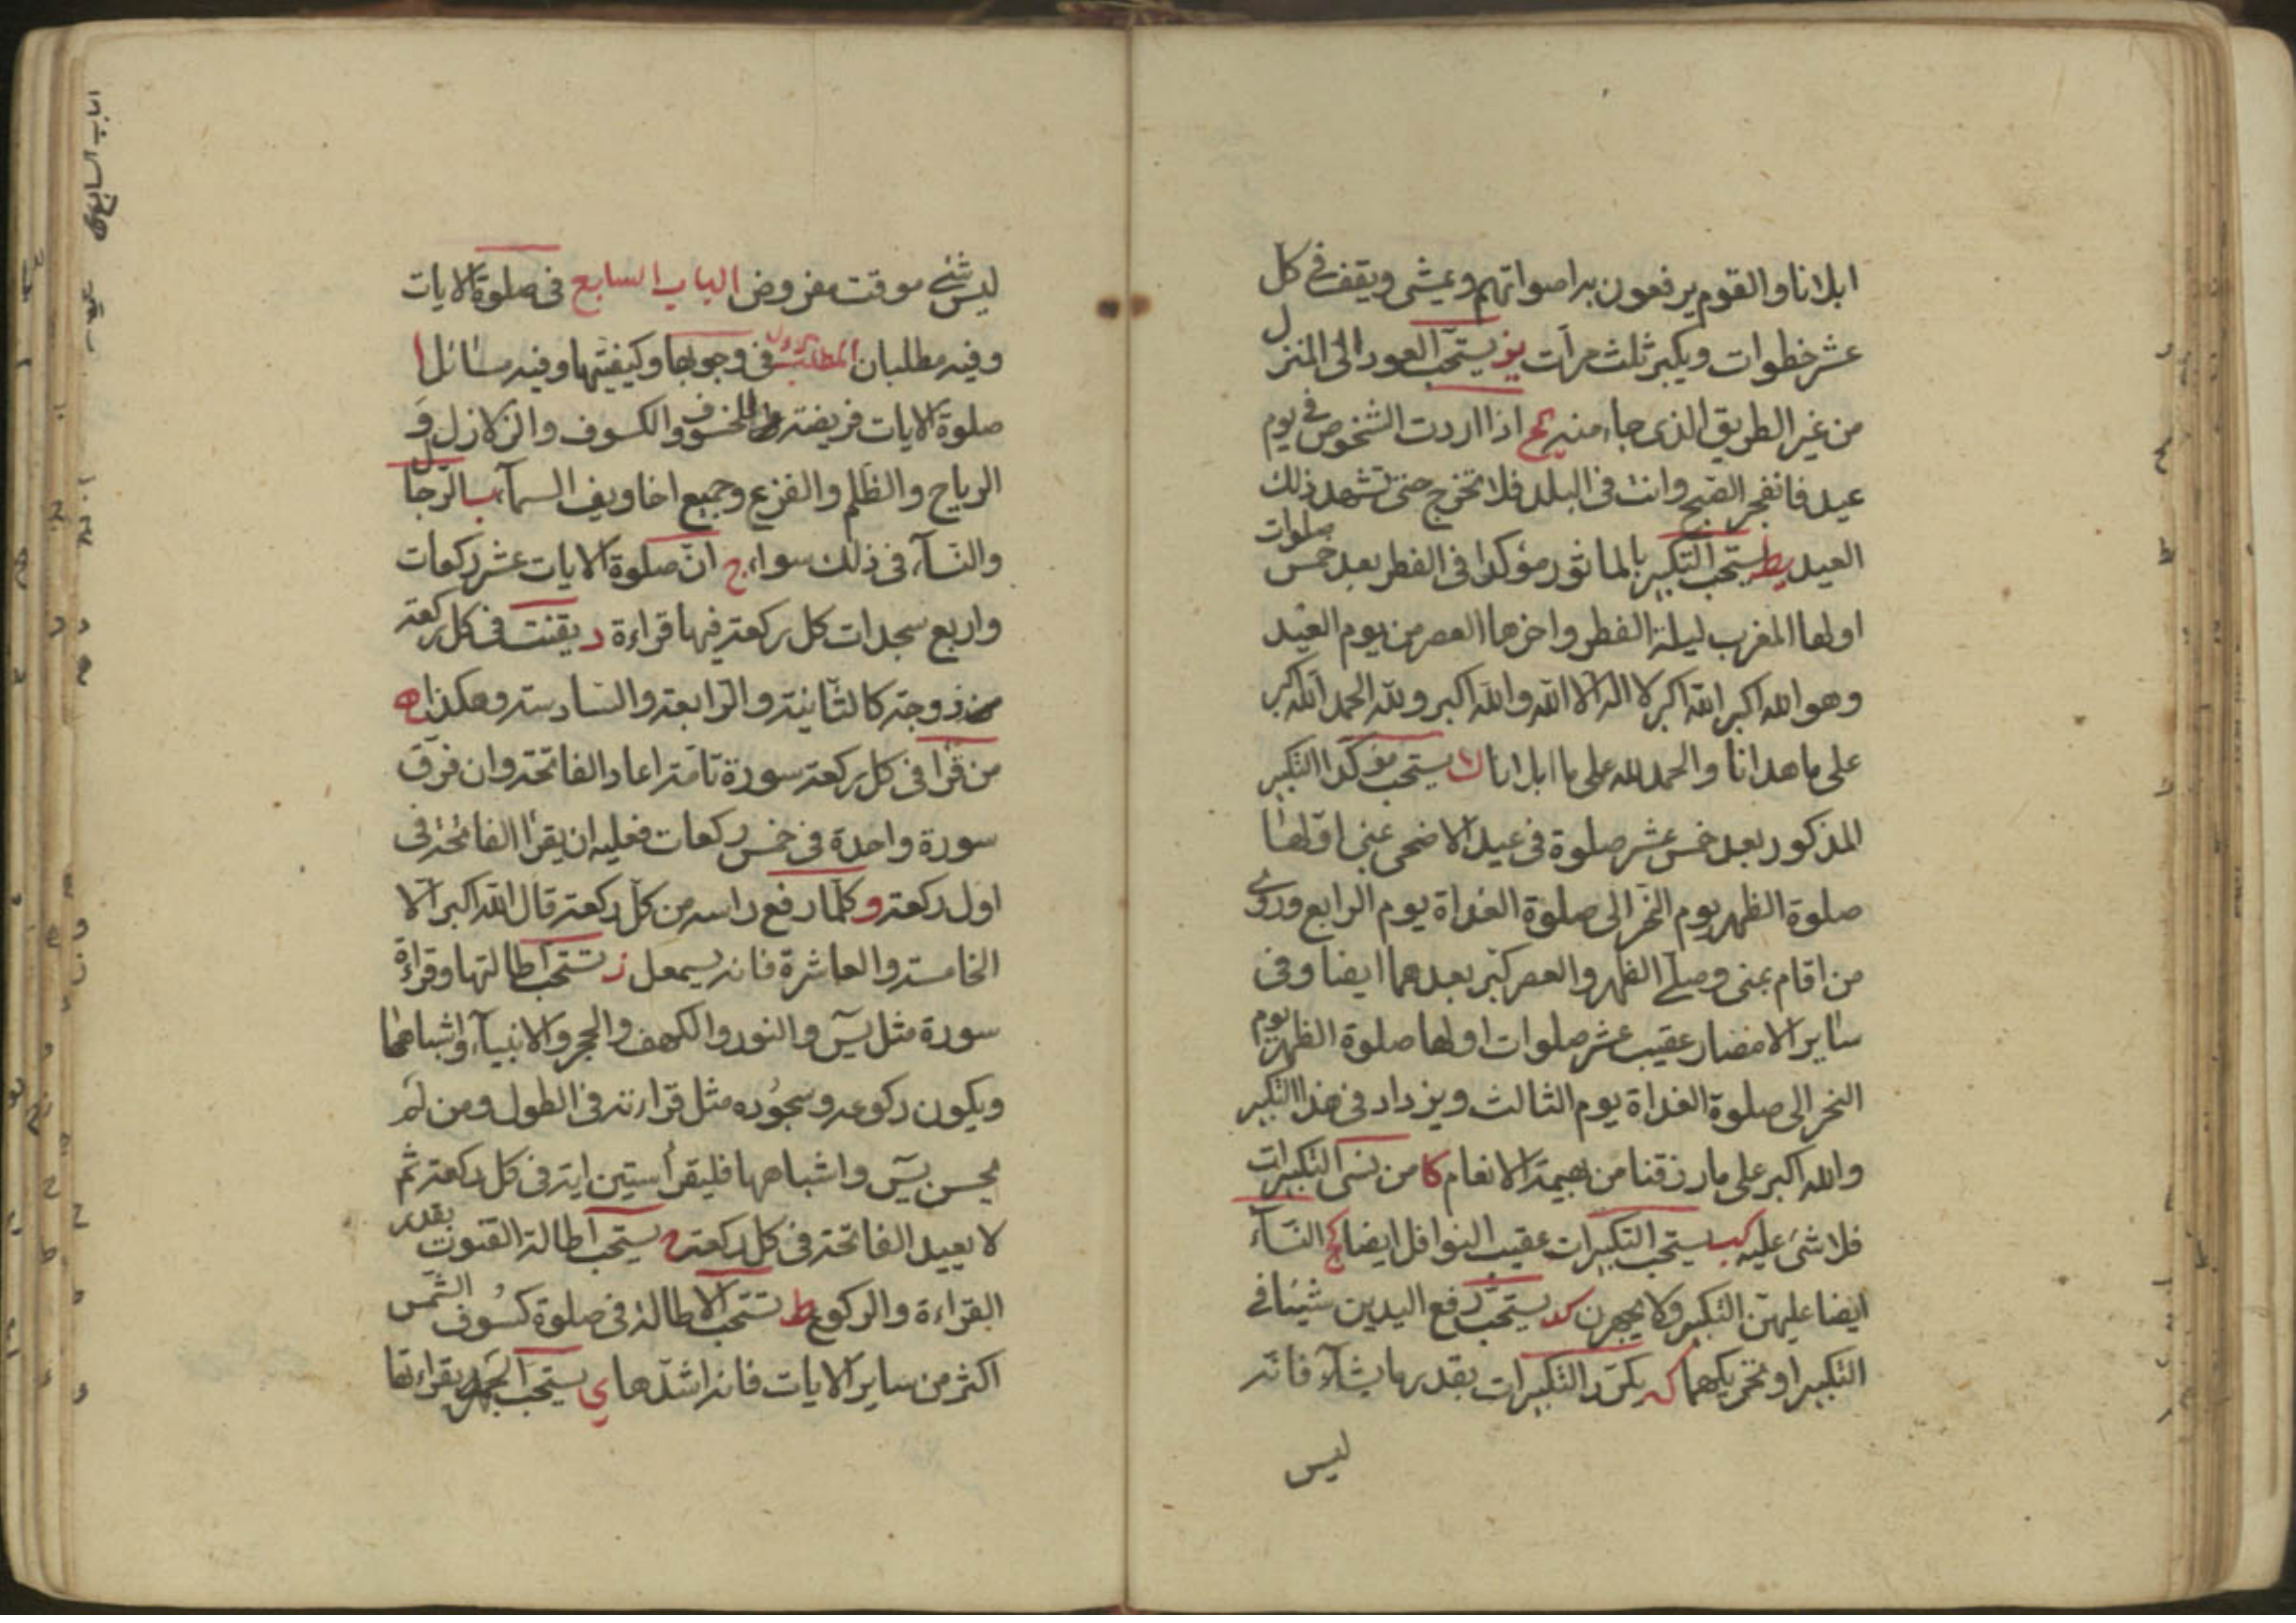 ابلانا والقوم يرفعون به اصواتهم ويمشى ويقف فى كل
عشر خطوات ويكبر ثلث مرات يز يستحب العود الى المنزل
من غير الطريق الذى جاء منه يح اذا اردت الشخوص فى يوم
عيد فانفجر الصبح وانت فى البلد فلا تخرج حتى تشهد ذلك
العيد يط يستحب التكبير بالماثور مؤكدا فى الفطر بعد خمس صلوات
اولها المغرب ليلة الفطر واخرها العصر من يوم العيد
وهو الله اكبر الله اكبر لا اله الا الله والله اكبر ولله الحمد الله اكبر
على ما هدانا والحمد لله على ما ابلانا ك يستحب مؤكدا التكبير
المذكور بعد خمس عشر صلوة فى عيد الاضحى بمنى اولها
صلوة الظهر يوم النحر الى صلوة الغداة يوم الرابع وروى
من اقام بمنى وصلى الظهر والعصر كبر بعدهما ايضا وفى
ساير الامصار عقيب عشر صلوات اولها صلوة الظهر يوم
النحر الى صلوة الغداة يوم الثالث ويزداد فى هذا التكبير
والله اكبر على ما رزقنا من بهيمة الانعام كا من نسى التكبيرات
فلا شئ عليه كب يستحب التكبيرات عقيب النوافل ايضا كج النساء
ايضا عليهن التكبير ولا يجهرن كد يستحب رفع اليدين شيئا فى
التكبير او تحريكهما كه يكرر التكبيرات بقدر ما يشاء فانه
ليس
ليس شئ موقت مفروض الباب السابع فى صلوة الايات
وفيه مطلبان المطلب الاول فى وجوبها وكيفيتها وفيه مسائل ا
صلوة الايات فريضة للخسوف والكسوف والزلازل و
الرياح والظلم والفزع وجميع اخاويف السماء ب الرجال
والنساء فى ذلك سواء ج ان صلوة الايات عشر ركعات
واربع سجدات كل ركعة فيها قراءة د يقنت فى كل ركعة
مزدوجة كالثانية والرابعة والسادسة وهكذا ه
من قرا فى كل ركعة سورة تامة اعاد الفاتحة وان فرق
سورة واحدة فى خمس ركعات فعليه ان يقرا الفاتحة فى
اول ركعة و كلما رفع راسه من كل ركعة قال الله اكبر الا
الخامسة والعاشرة فانه يسمعل ز تستحب اطالتها وقراءة
سورة مثل يس والنور والكهف والحجر والانبياء واشباهها
ويكون ركوعه وسجوده مثل قراءته فى الطول ومن لم
يحسن يس واشباهها فليقرأ ستين اية فى كل ركعة ثم
لا يعيد الفاتحة فى كل ركعة ح يستحب اطالة القنوت بقدر
القراءة والركوع ط تستحب الاطالة فى صلوة كسوف الشمس
اكثر من ساير الايات فانه اشدها ي يستحب الجهر بقراءتها